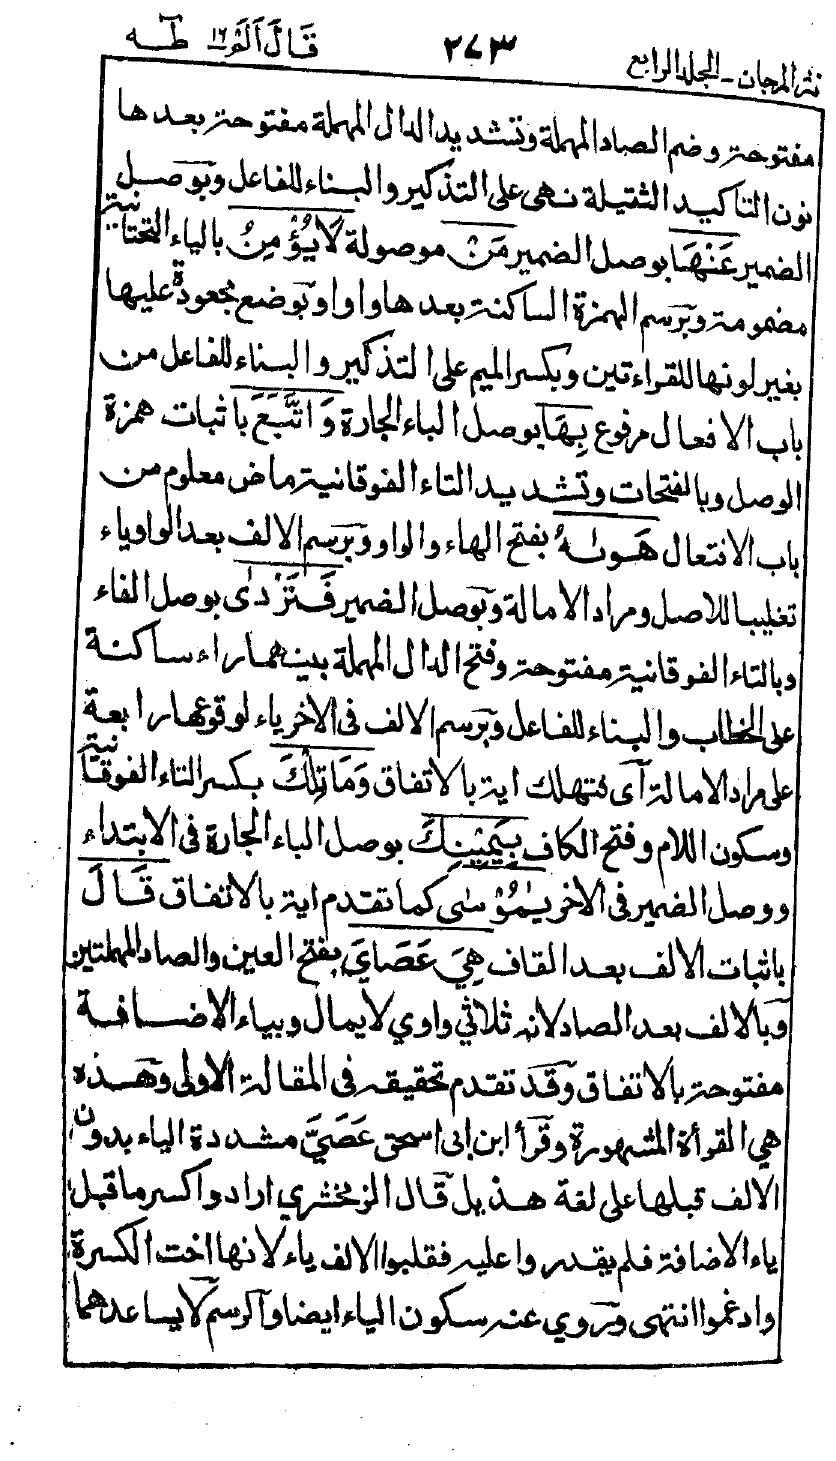 نثر المرجان - المجلد الرابع ٢٧٣ قَالَ اَلَمْ ١٦ طٰه
مفتوحة وضم الصاد المهملة وتشديد الدال المهملة مفتوحة بعدها
نون التاكيد الثقيلة نهى على التذكير والبناء للفاعل وبوصل
الضمير عَنْهَا بوصل الضمير مَنْ موصولة لَا يُؤْمِنُ بالياء التحتانية
مضمومة وبرسم الهمزة الساكنة بعدها واوا وبوضع مجعودة عليها
بغير لونها للقراءتين وبكسر الميم على التذكير والبناء للفاعل من
باب الافعال مرفوع بِهَا بوصل الباء الجارة وَاتَّبَعَ باثبات همزة
الوصل وبالفتحات وتشديد التاء الفوقانية ماض معلوم من
باب الافتعال هَوٰىهُ بفتح الهاء والواو وبرسم الالف بعد الواو ياء
تغليبا للاصل ومراد الامالة وبوصل الضمير فَتَرْدٰى بوصل الفاء
وبالتاء الفوقانية مفتوحة وفتح الدال المهملة بينهما راء ساكنة
على الخطاب والبناء للفاعل وبرسم الالف فى الاخر ياء لوقوعها رابعة
على مراد الامالة آى فتهلك اية بالاتفاق وَمَا تِلْكَ بكسر التاء الفوقانية
وسكون اللام وفتح الكاف بِيَمِيْنِكَ بوصل الباء الجارة فى الابتداء
ووصل الضمير فى الاخر يٰمُوْسٰى كما تقدم اية بالاتفاق قَالَ
باثبات الالف بعد القاف هِيَ عَصَايَ بفتح العين والصاد المهملتين
وبالالف بعد الصاد لانه ثلاثي واوي لا يمال وبياء الاضافة
مفتوحة بالاتفاق وقد تقدم تحقيقه فى المقالة الاولى وهذه
هي القرأة المشهورة وقرأ ابن ابى اسحق عَصَيَّ مشددة الياء بدون
الالف قبلها على لغة هذيل قال الزمخشري ارادوا كسر ما قبل
ياء الاضافة فلم يقدروا عليه فقلبوا الالف ياء لانها اخت الكسرة
وادغموا انتهى وروي عنه سكون الياء ايضا والرسم لا يساعدهما